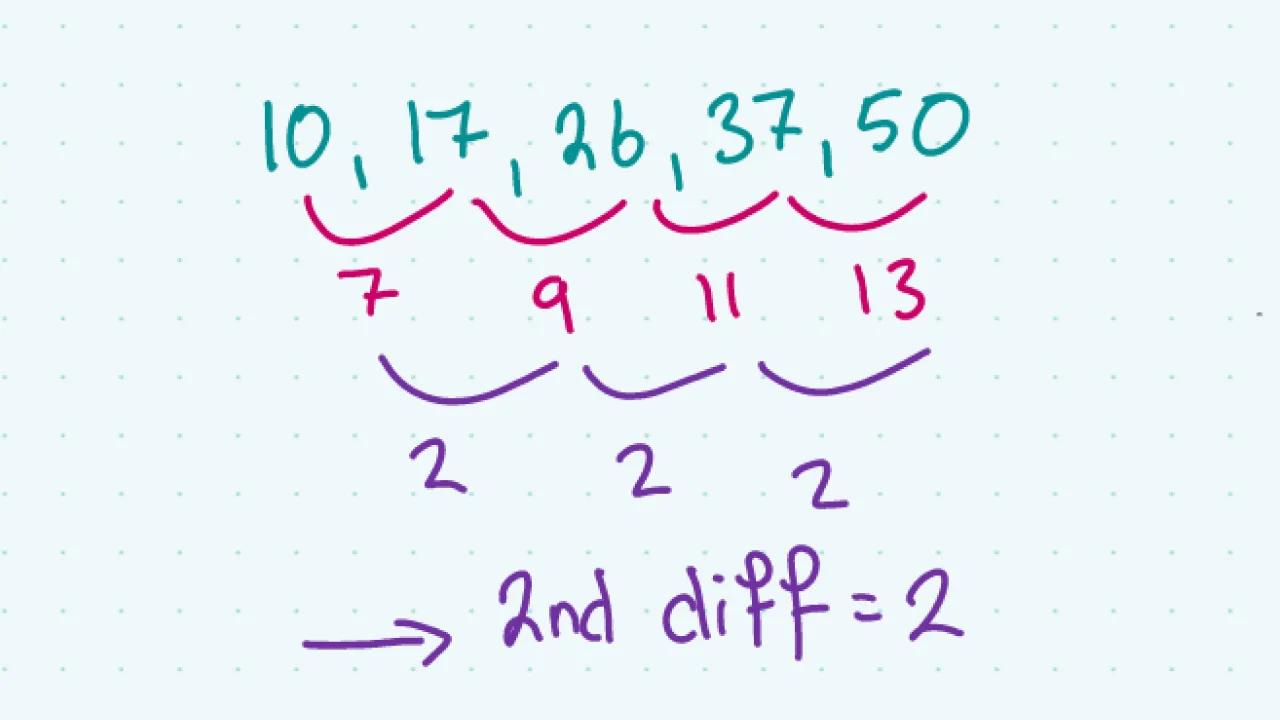 10, 17, 26, 37, 50
7 9 11 13
2 2 2
→ 2nd diff = 2